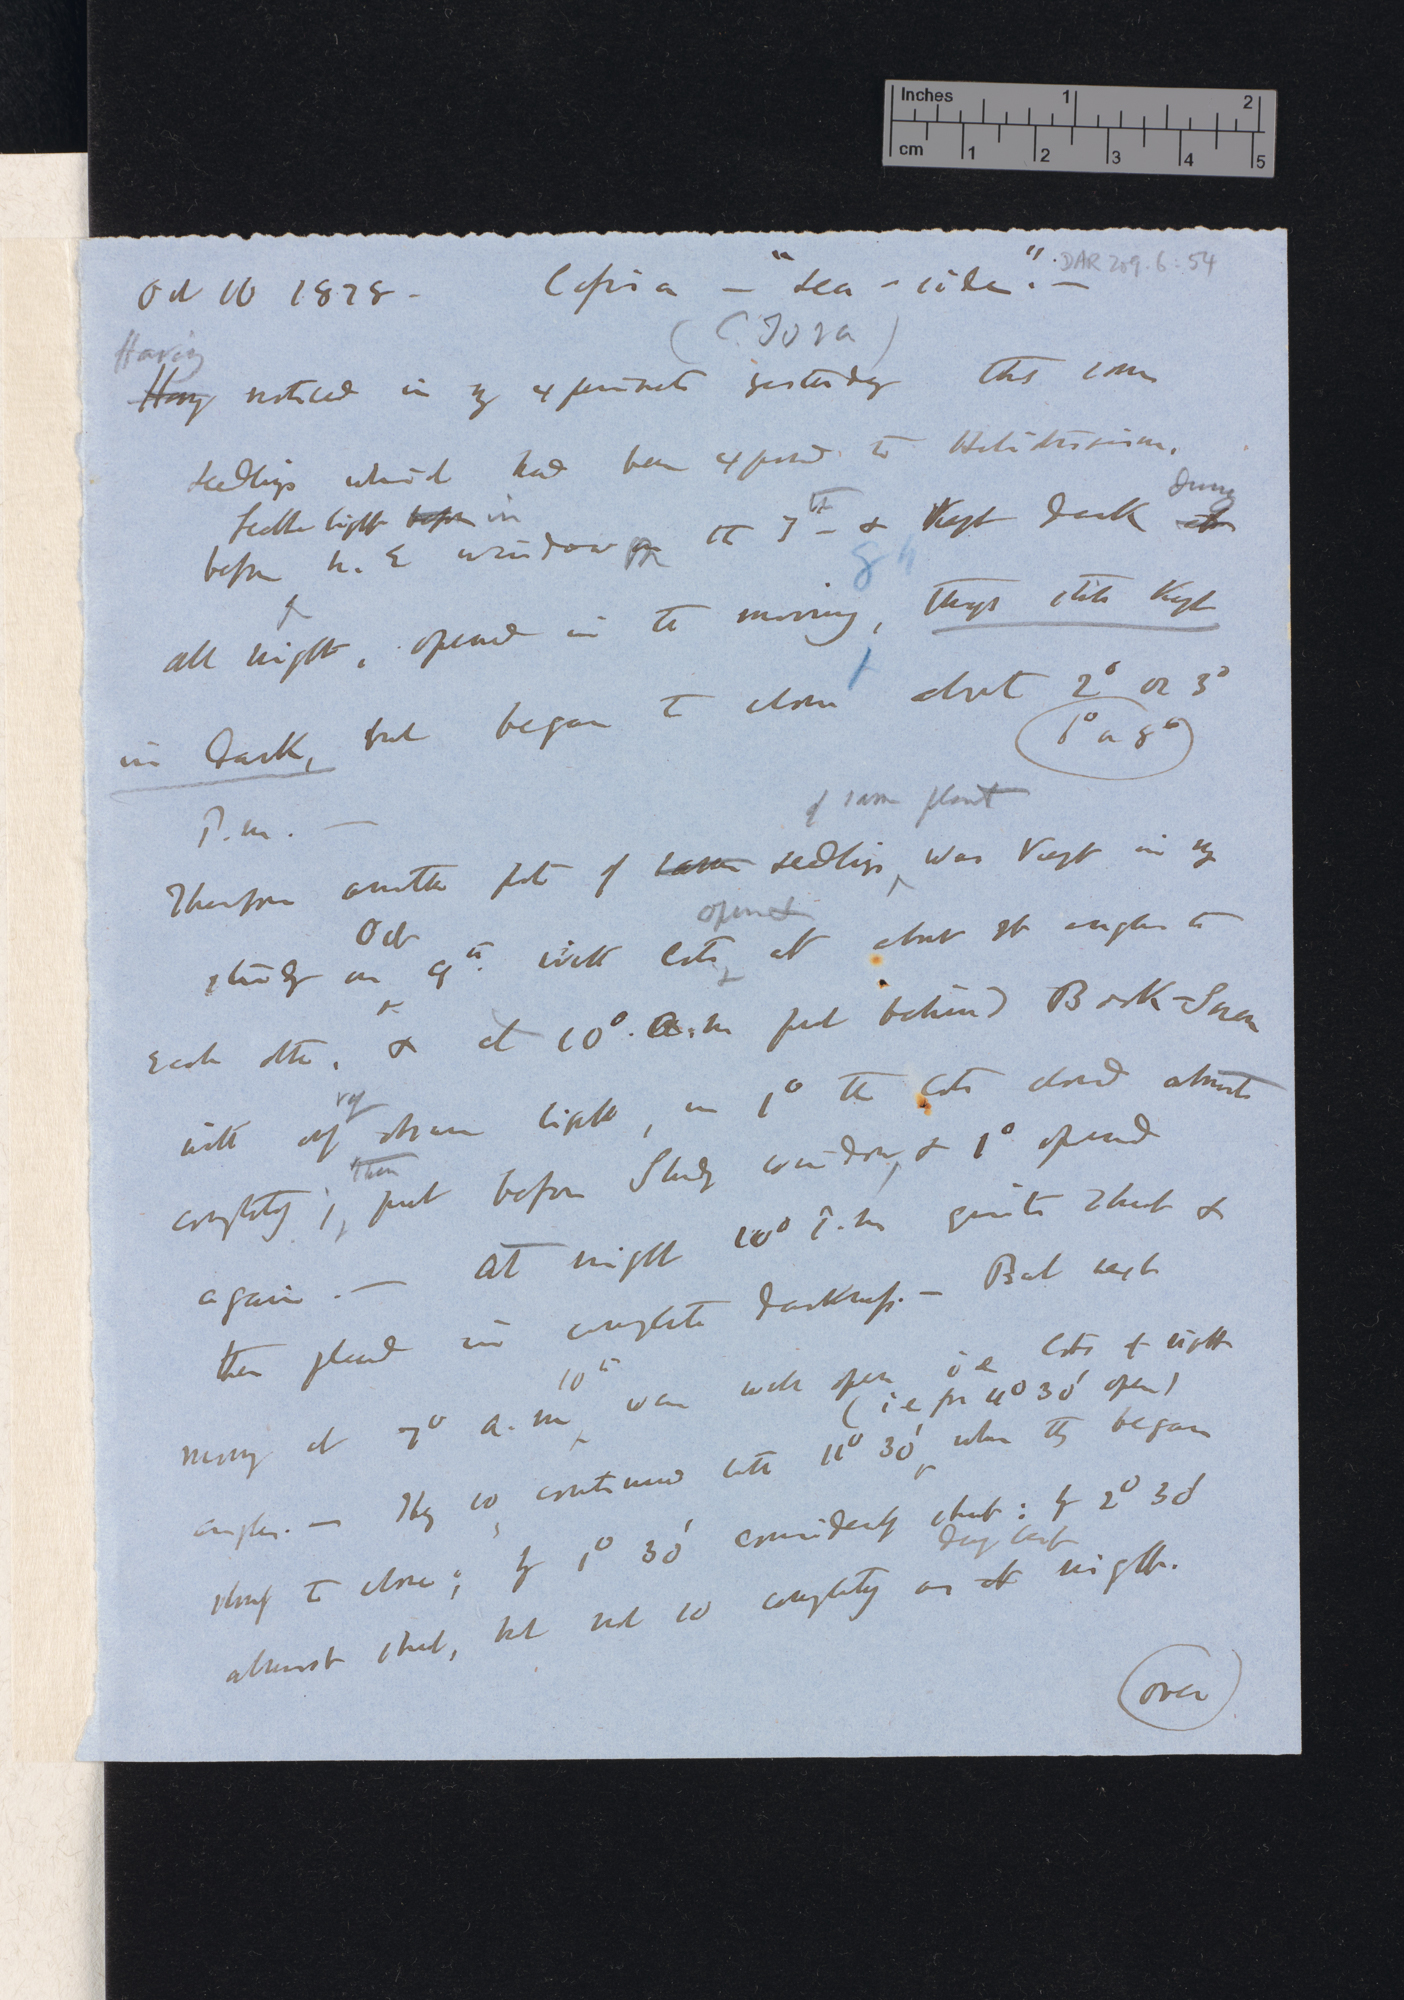 Inches 1 2
cm 1 2 3 4 5
DAR 209.6:54
Oct 10 1878 - Cassia — "sea-side". —
(C. Tora)
Having
Having noticed in my experiments yesterday that some
seedlings which had been exposed to Heliotropism,
before in
before N. E window on the 7th & Kept dark during
all night, opened in the morning, though still Kept
in dark, but began to close about 2° or 3°
P.m. —
of same plant
Therefore another pot of same seedlings, was Kept in my
opened
Oct
study on 9th with Cots, at about rt angles to
each other, & at 10°. a.m put behind Book-Screen
very
with obscure light, in 1° the Cots closed almost
then
completely; put before Study window, & 1° opened
again. — At night 10° P.m quite shut &
then placed in complete darkness. — But next
10th
morning at 7° a.m were well open i e Cots at right
(i e for 4° 30' open)
angles. — They so continued till 11° 30', when they began
slowly to close; by 1° 30' considerably shut: by 2° 30'
almost shut, but not so completely as at night.
(over)